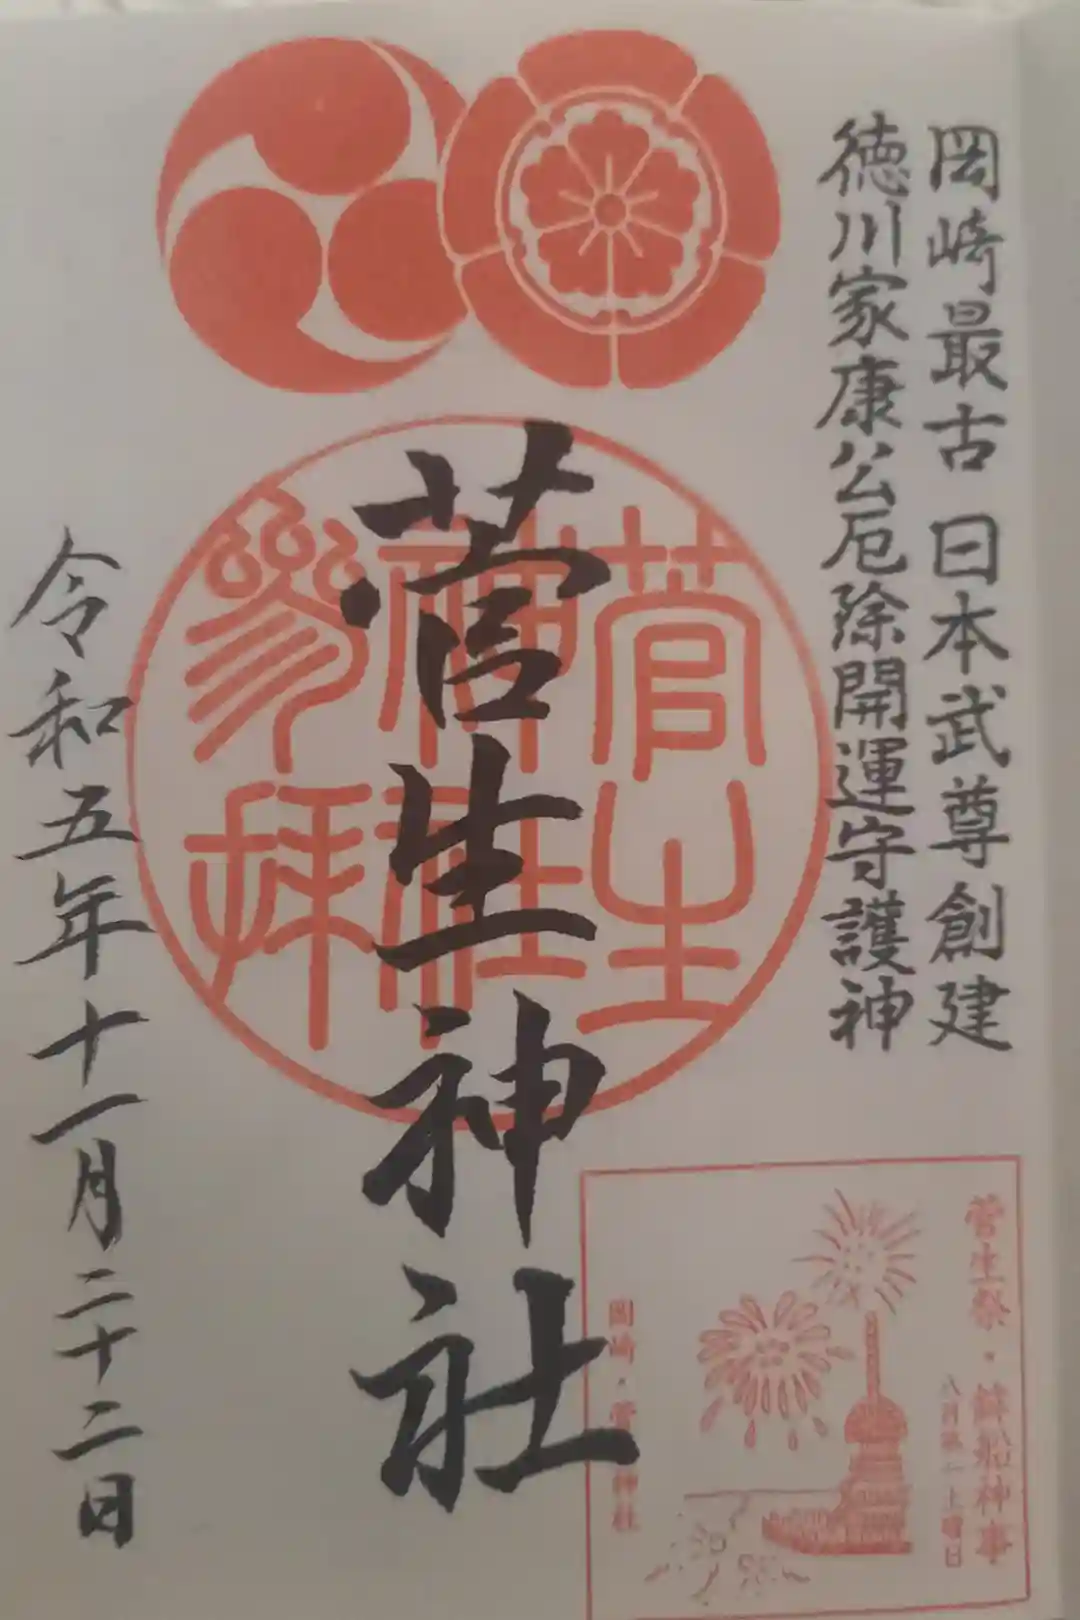 岡崎最古 日本武尊創建
徳川家康公厄除開運守護神
菅生神社
菅生
神社
参拝
令和五年十一月二十二日
菅生祭・鉾船神事
八月第一土曜日
岡崎・菅生神社